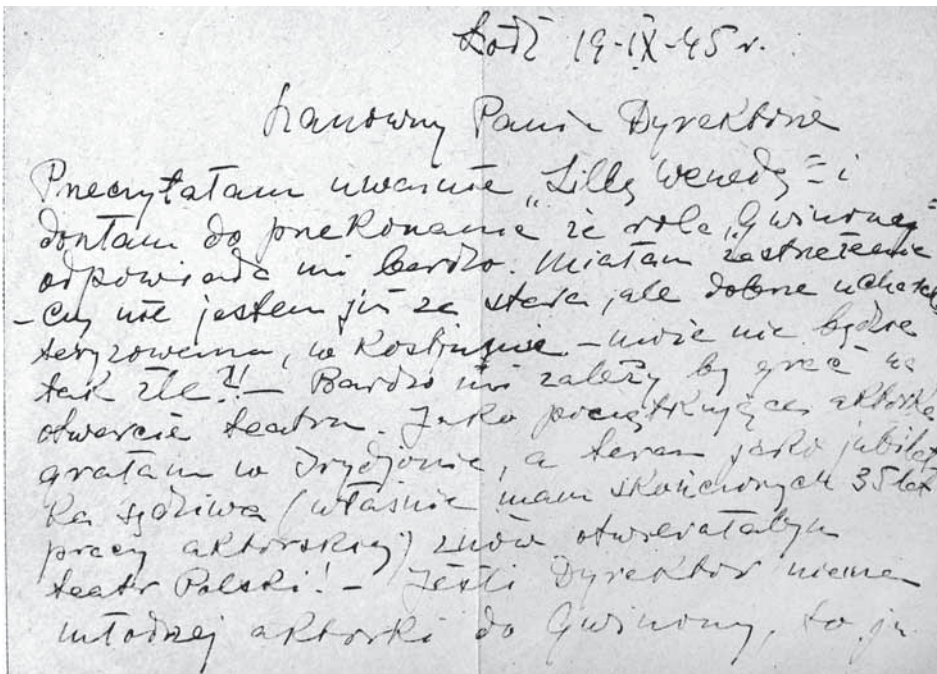 Łódź 19-IX-45 r.
Szanowny Panie Dyrektorze
Przeczytałam uważnie „Lillę Wenedę" i
doszłam do przekonania że rola „Gwinony"
odpowiada mi bardzo. Miałam zastrzeżenie
- czy nie jestem już za stara, ale dobrze ucharak
teryzowana, w kostjumie - może nie będzie
tak źle?! - Bardzo mi zależy by grać na
otwarcie teatru. Jako początkująca aktorka
grałam w Irydjonie, a teraz jako jubilat
ka sędziwa (właśnie mam skończonych 35 lat
pracy aktorskiej) znów otwierałabym
teatr Polski! - Jeśli Dyrektor niema
młodszej aktorki do Gwinony, to ja